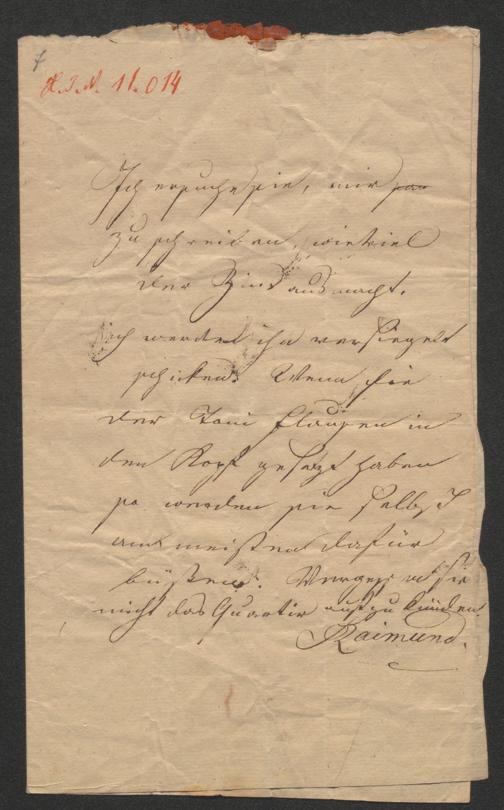 7
H.I.N. 11.014
Ich ersuche sie, mir
zu schreiben, wieviel
der Zins ausmacht.
Ich werde ihn versiegelt
schicken. Wenn sie
der Toni flausen in
den Kopf gesezt haben
so werden sie selbst
am meisten dafür
büßen. Vergessen sie
nicht das Quartir aufzukünden.
Raimund.